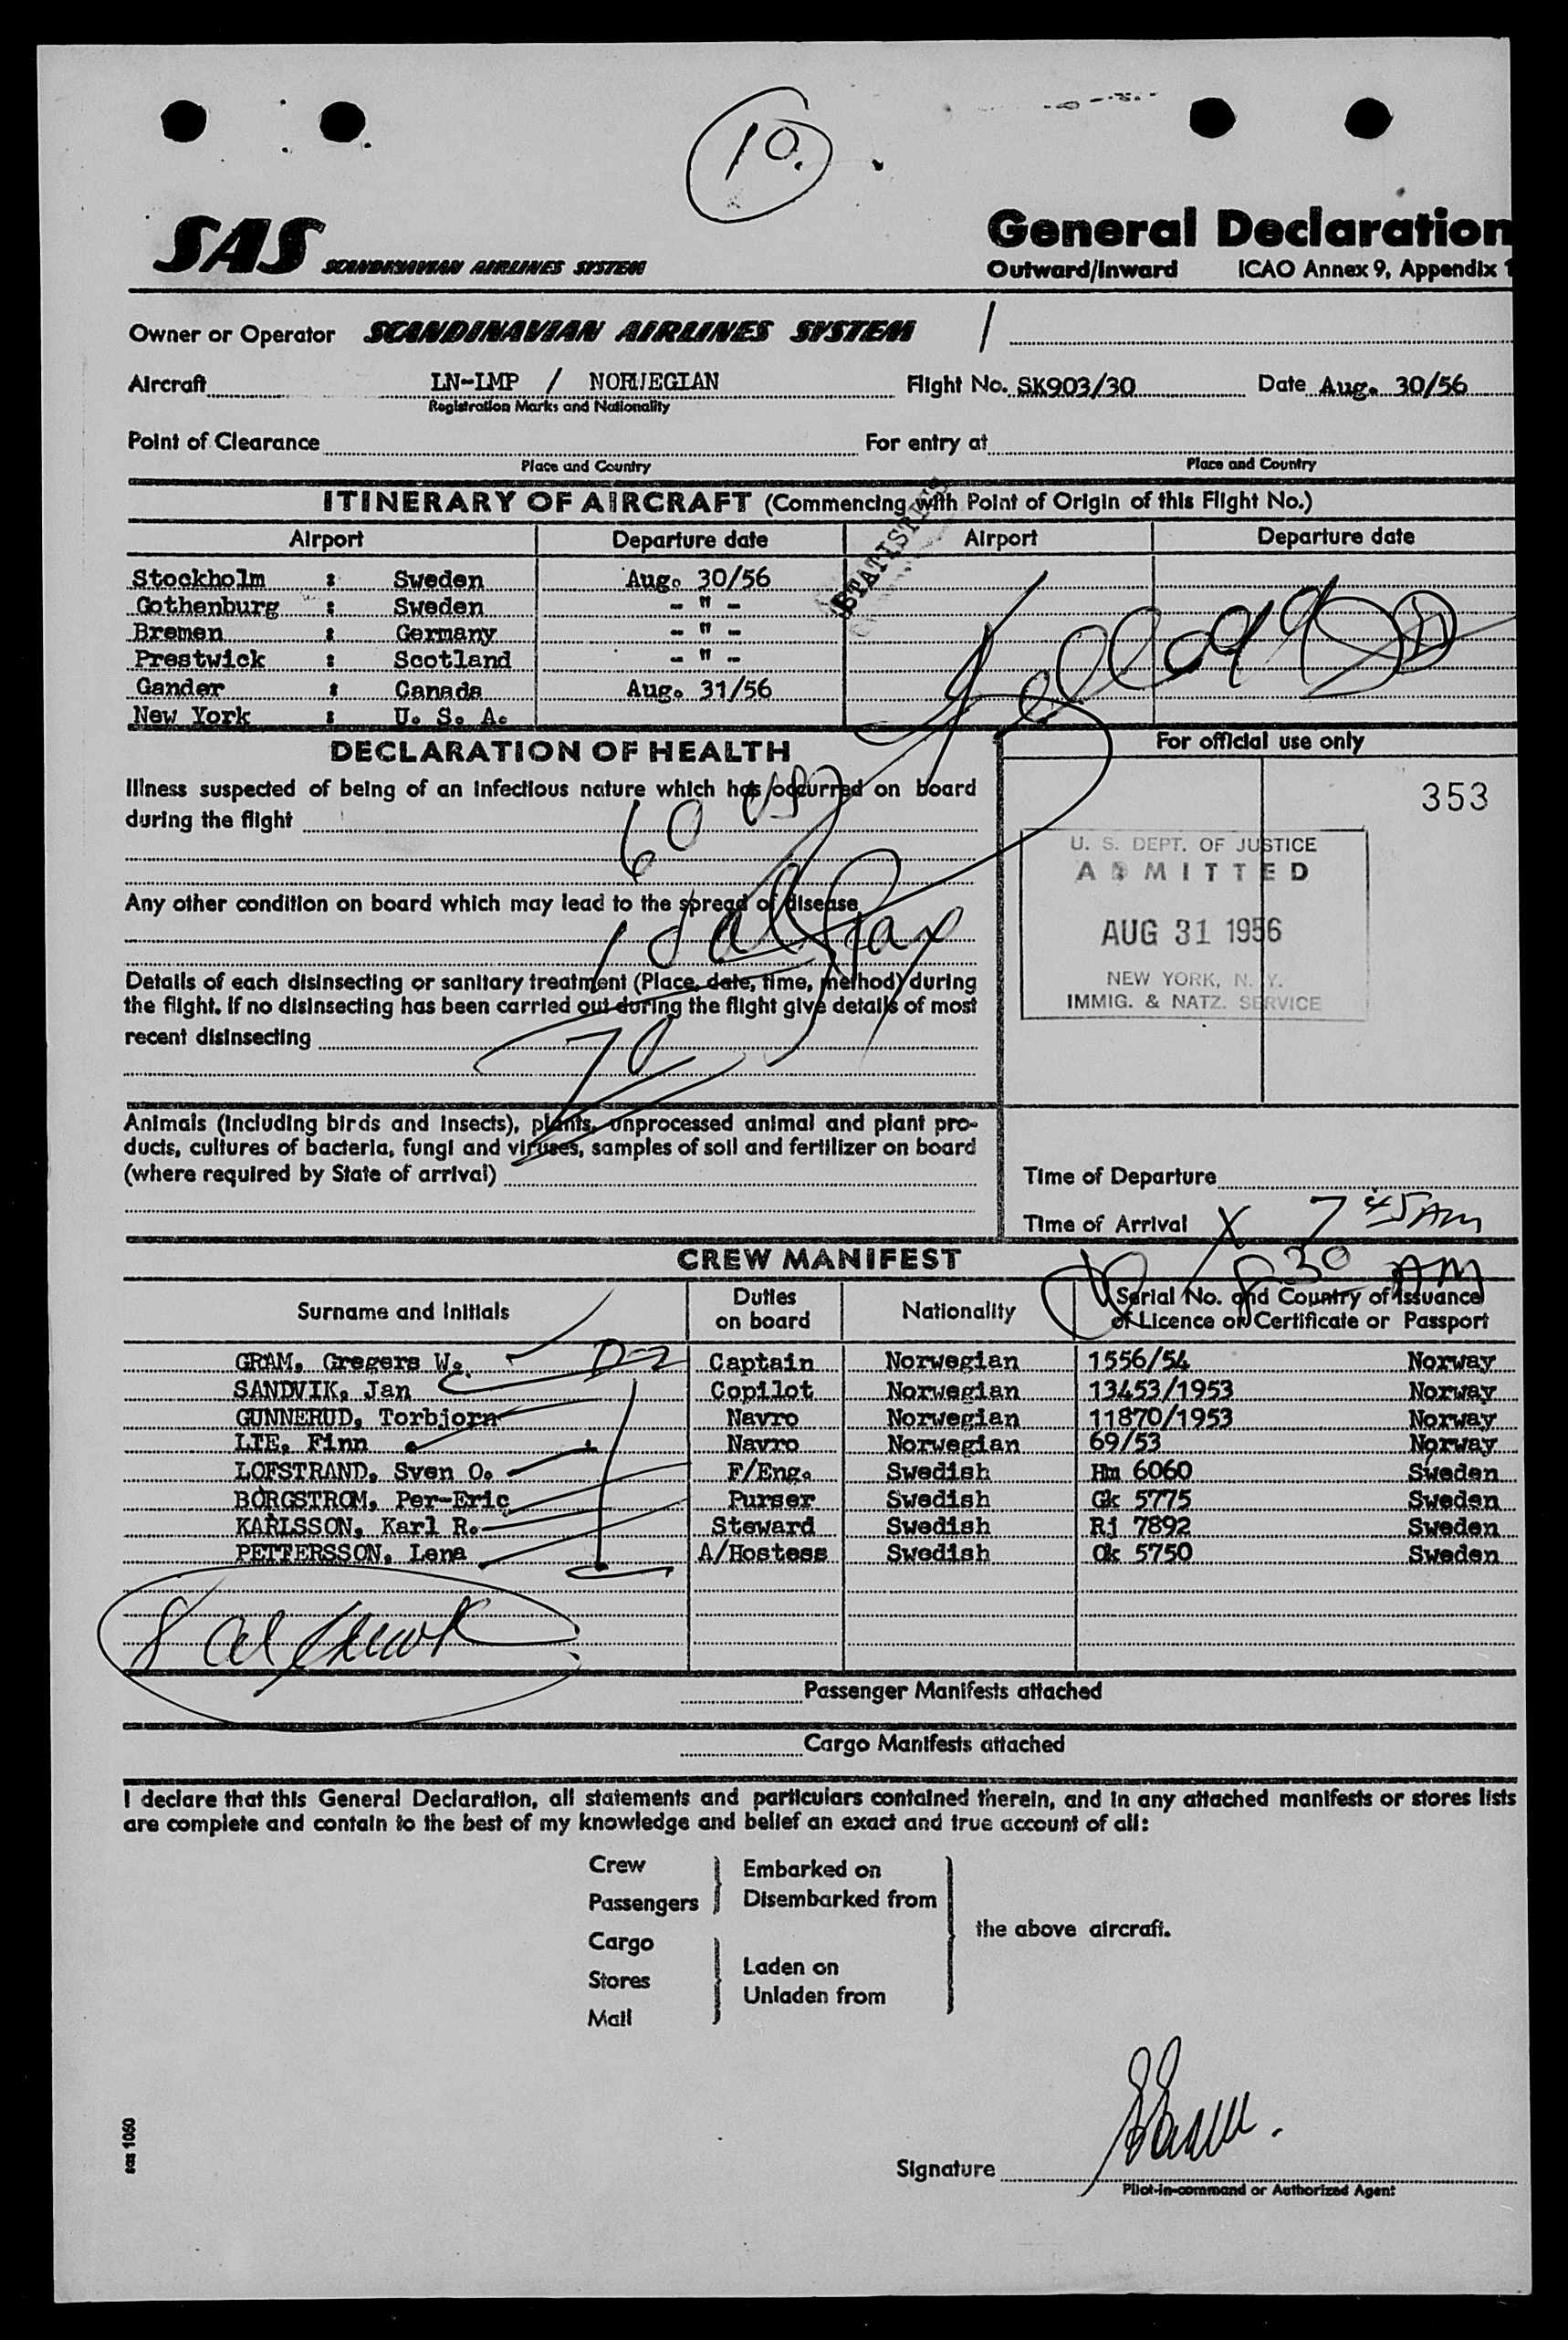 10.
SAS SCANDINAVIAN AIRLINES SYSTEM
General Declaration
Outward/Inward ICAO Annex 9, Appendix 1
Owner or Operator SCANDINAVIAN AIRLINES SYSTEM /
Aircraft LN-LMP / NORWEGIAN Flight No. SK903/30 Date Aug. 30/56
Registration Marks and Nationality
Point of Clearance For entry at
Place and Country Place and Country
ITINERARY OF AIRCRAFT (Commencing with Point of Origin of this Flight No.)
Airport Departure date Airport Departure date
STATISTICS
Stockholm : Sweden Aug. 30/56
Gothenburg : Sweden - " -
Bremen : Germany - " -
Prestwick : Scotland - " -
Gander : Canada Aug. 31/56
New York : U. S. A.
DECLARATION OF HEALTH
For official use only
Illness suspected of being of an infectious nature which has occurred on board
during the flight
353
60
U. S. DEPT. OF JUSTICE
ADMITTED
AUG 31 1956
NEW YORK, N. Y.
IMMIG. & NATZ. SERVICE
Any other condition on board which may lead to the spread of disease
Details of each disinsecting or sanitary treatment (Place, date, time, method) during
the flight. If no disinsecting has been carried out during the flight give details of most
recent disinsecting
70
Animals (including birds and insects), plants, unprocessed animal and plant pro-
ducts, cultures of bacteria, fungi and viruses, samples of soil and fertilizer on board
(where required by State of arrival)
Time of Departure
Time of Arrival X 7 45 AM
8 30 AM
CREW MANIFEST
Surname and Initials Duties on board Nationality Serial No. and Country of Issuance of Licence or Certificate or Passport
GRAM, Gregers W. D-2 Captain Norwegian 1556/54 Norway
SANDVIK, Jan Copilot Norwegian 13453/1953 Norway
GUNNERUD, Torbjorn Navro Norwegian 11870/1953 Norway
LIE, Finn Navro Norwegian 69/53 Norway
LOFSTRAND, Sven O. F/Eng. Swedish Hm 6060 Sweden
BORGSTROM, Per-Eric Purser Swedish Gk 5775 Sweden
KARLSSON, Karl R. Steward Swedish Rj 7892 Sweden
PETTERSSON, Lena A/Hostess Swedish Ok 5750 Sweden
Passenger Manifests attached
Cargo Manifests attached
I declare that this General Declaration, all statements and particulars contained therein, and in any attached manifests or stores lists
are complete and contain to the best of my knowledge and belief an exact and true account of all:
Crew Embarked on
Passengers Disembarked from
the above aircraft.
Cargo
Laden on
Stores
Unladen from
Mail
sas 1050
Signature
Pilot-in-command or Authorized Agent